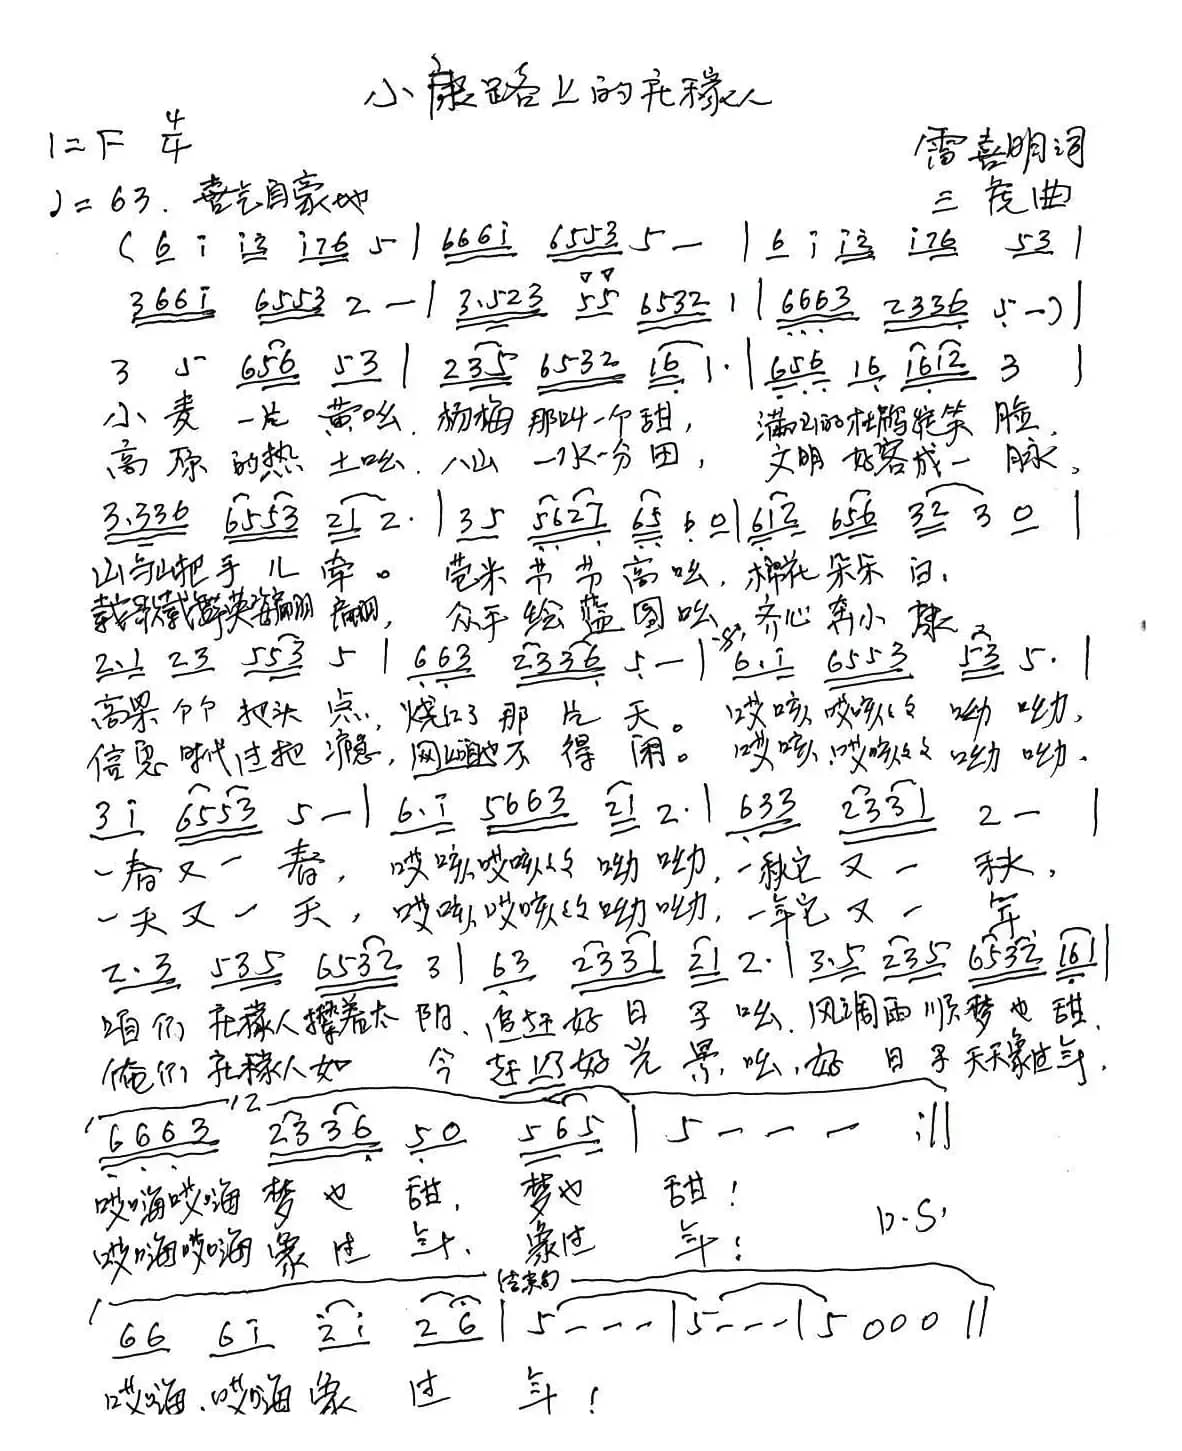 小康路上的庄稼人
1=F 4/4
雷喜明词
♩=63. 喜气自豪地
三虎曲
(6 i i2 i76 5 | 666i 6553 5 — | 6 i i2 i76 53 |
366i 6553 2 — | 3.523 55 6532 1 | 6663 2336 5 —) |
3 5 656 53 | 235 6532 16 1. | 656 16 1612 3 |
小麦一片黄吆.杨梅那叫一个甜,满山的杜鹃绽笑脸,
高原的热土吆.八山一水一分田,文明好客成一脉、
3.336 6553 21 2. | 35 5627 65 6 0 | 612 656 32 3 0 |
山与山把手儿牵。苞米节节高吆.棉花朵朵白.
载歌载舞英姿翩翩,众手绘蓝图吆,齐心奔小康
2.1 23 553 5 | 663 2336 5 — | 6.i 6553 53 5. |
高粱个个把头点,烧红了那片天。哎咳哎咳么呦呦,
信息时代过把瘾,网上购也不得闲。哎咳.哎咳么呦呦.
3i 6553 5 — | 6.i 5663 21 2. | 633 2331 2 — |
一春又一春,哎咳哎咳么呦呦,一秋它又一秋,
一天又一天,哎咳哎咳么呦呦,一年它又一年
2.3 535 6532 3 | 63 2331 21 2. | 3.5 235 6532 161 |
咱们庄稼人撵着太阳、追赶好日子吆.风调雨顺梦也甜.
俺们庄稼人如今赶上了好光景吆,好日子天天象过年.
12
6663 2336 50 565 | 5 — — — :||
哎嗨哎嗨梦也甜,梦也甜!
D.S.
哎嗨哎嗨象过年、象过年!
结束句
66 6i 2i 26 | 5 — — — | 5 — — — | 5 0 0 0 ||
哎嗨.哎嗨象过年!